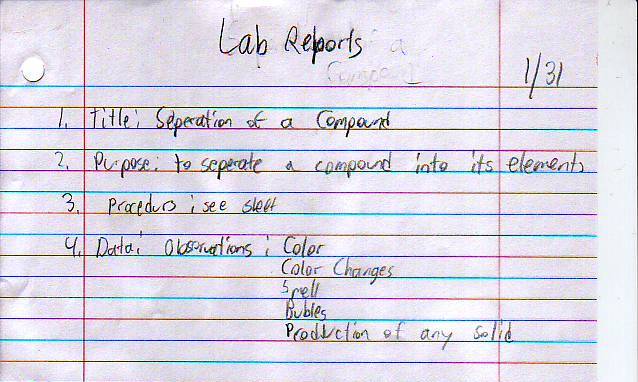 Lab Reports
1/31
1. Title: Seperation of a Compound
2. Purpose: to seperate a compound into its elements
3. Procedurs: see sheet
4. Data: Observations: Color
Color Changes
Smell
Bubles
Production of any solid